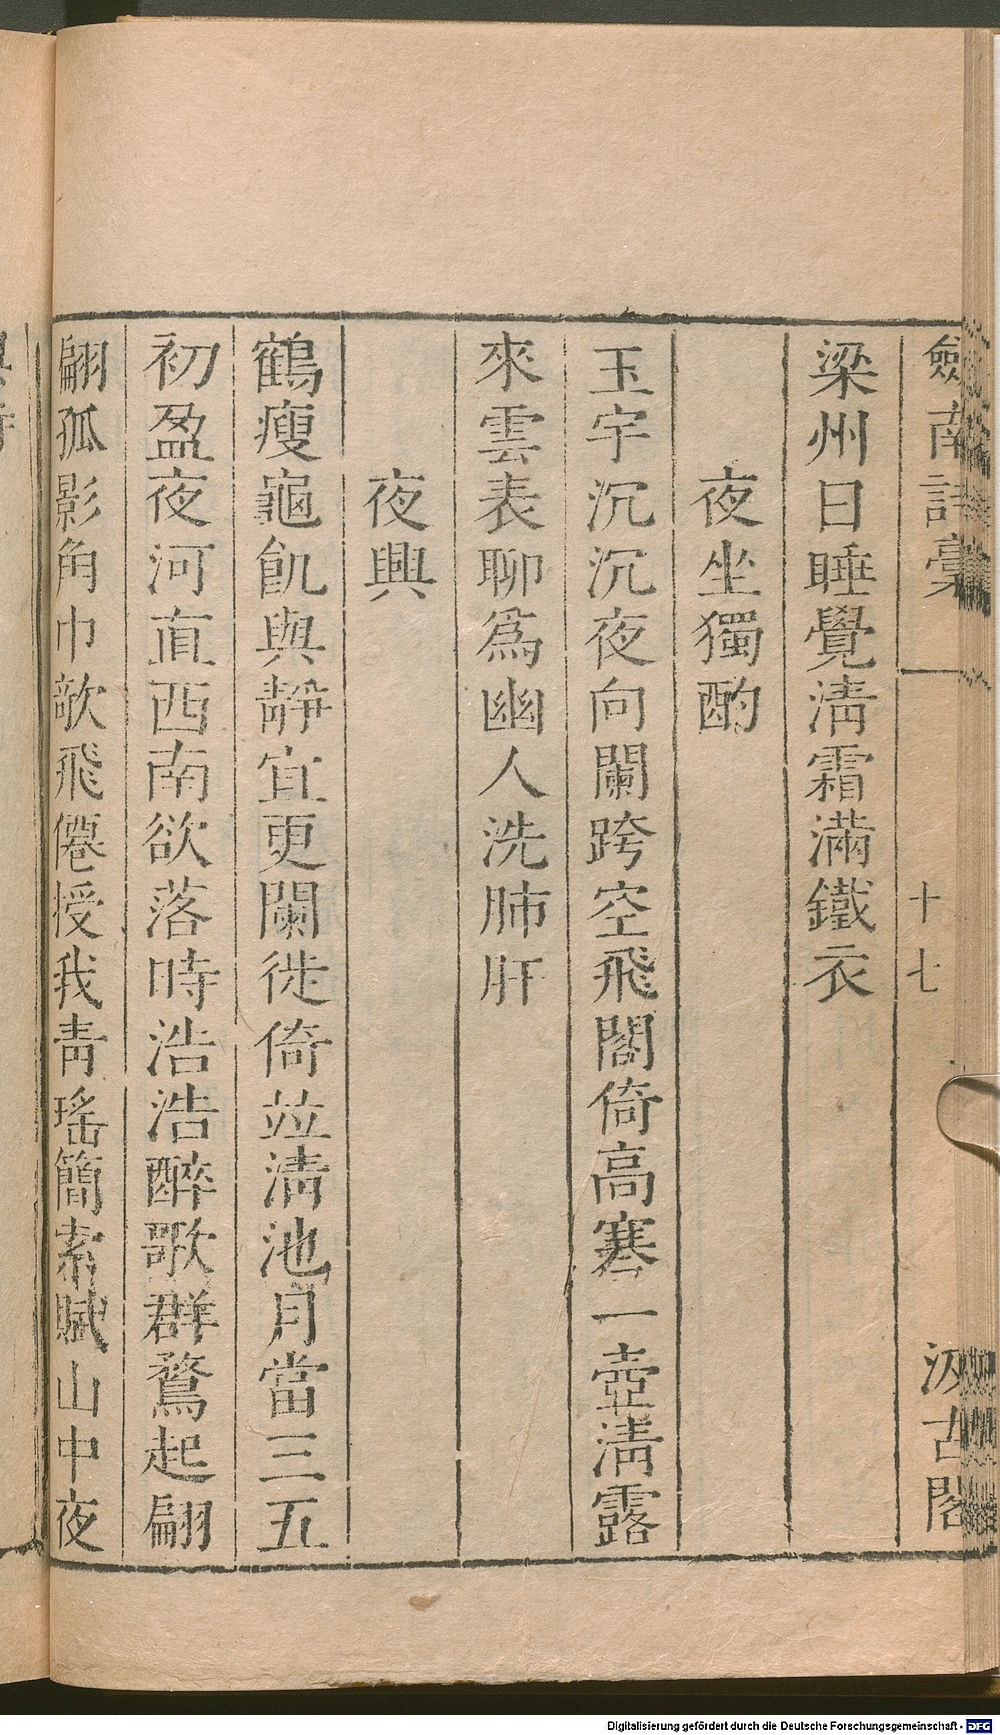 劔南詩稾 十七 汲古閣
梁州日睡覺淸霜滿鐵衣
夜坐獨酌
玉宇沉沉夜向闌跨空飛閣倚高寒一壺淸露
來雲表聊爲幽人洗肺肝
夜興
鶴瘦龜飢與靜宜更闌徙倚竝淸池月當三五
初盈夜河直西南欲落時浩浩醉歌群鶩起翩
翩孤影角巾欹飛僊授我靑瑤簡索賦山中夜
Digitalisierung gefördert durch die Deutsche Forschungsgemeinschaft - DFG